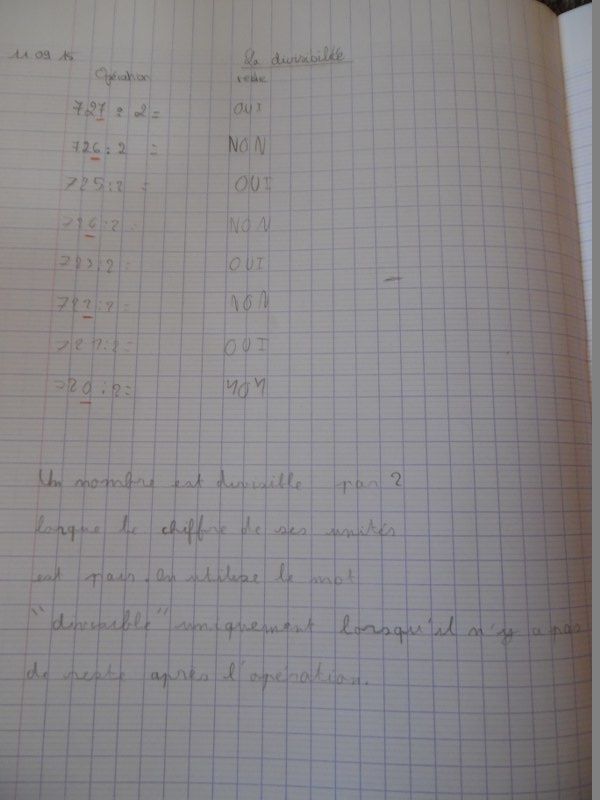 11 09 15 La divisibilité
Opération reste
727 : 2 = OUI
726 : 2 = NON
725 : 2 = OUI
726 : 2 = NON
723 : 2 = OUI
722 : 2 = NON
721 : 2 = OUI
720 : 2 = NON
Un nombre est divisible par 2
lorque le chiffre de ses unités
est pair. On utilise le mot
"divisible" uniquement lorsqu'il n'y a pas
de reste après l'opération.